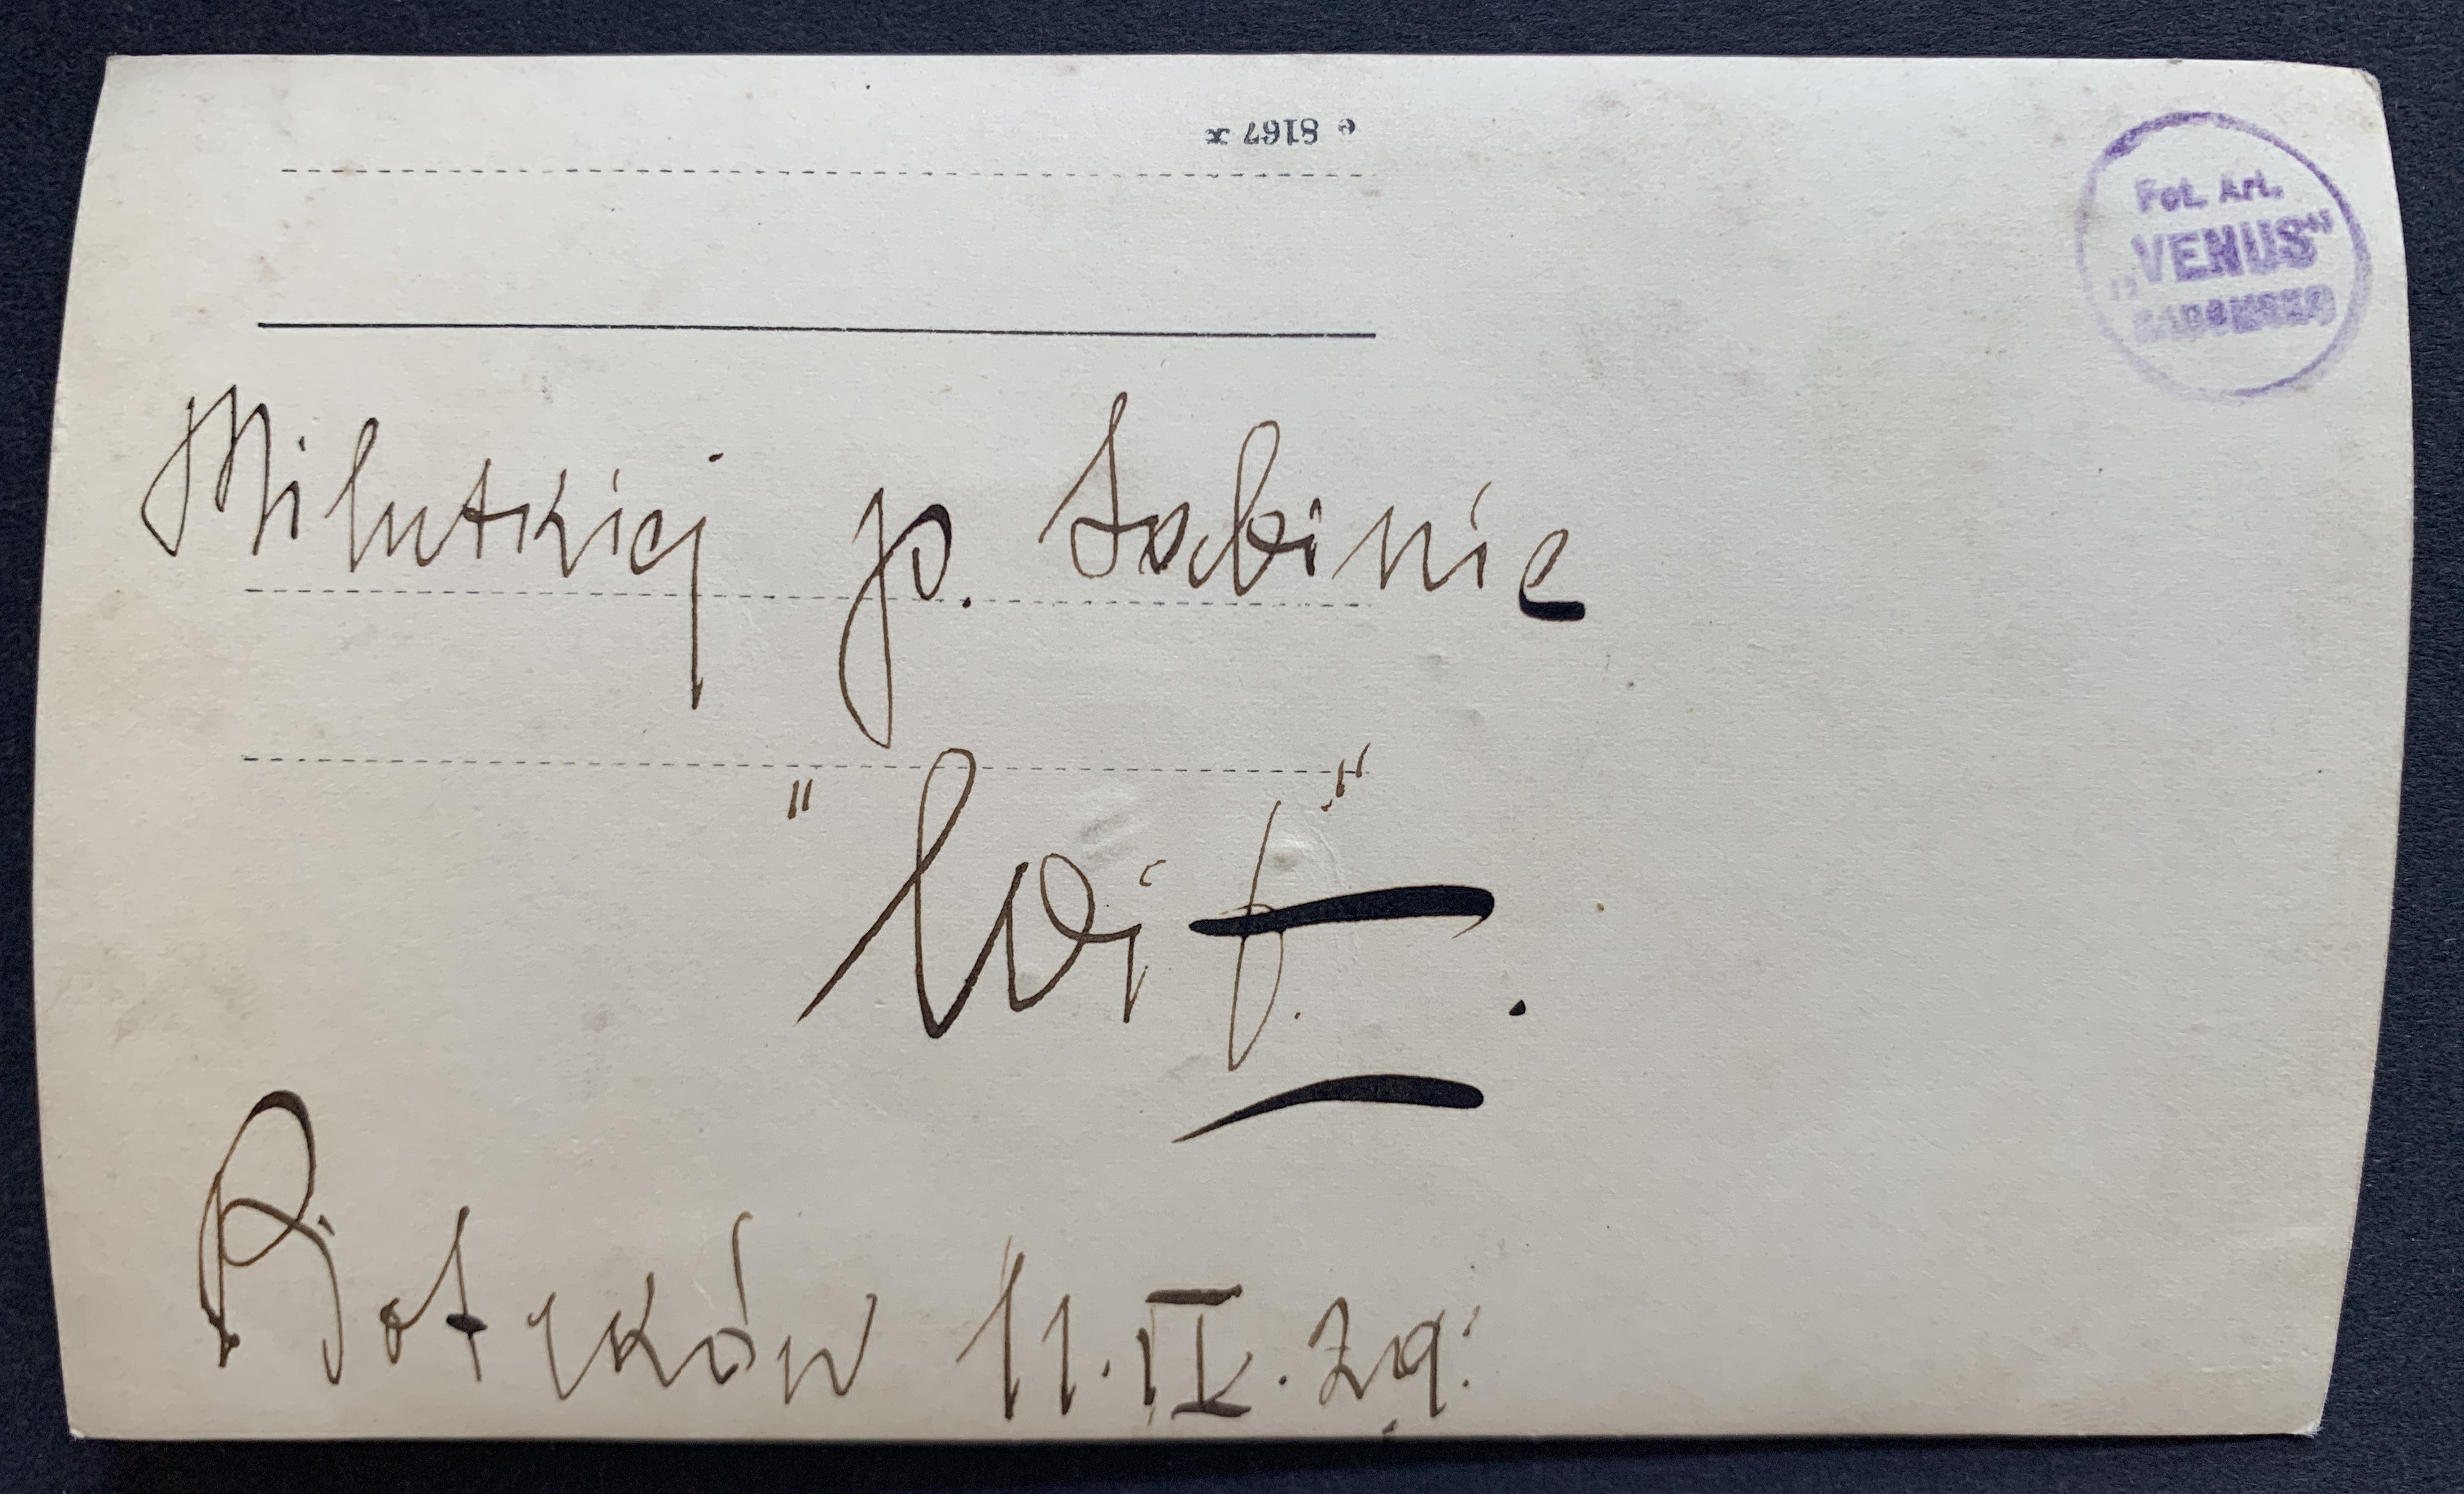 e 8167 x
Fot. Art.
„VENUS"
RADOMSKO
Milutkiej p. Sabinie
"Wit".
Piotrków 11.IX.29.